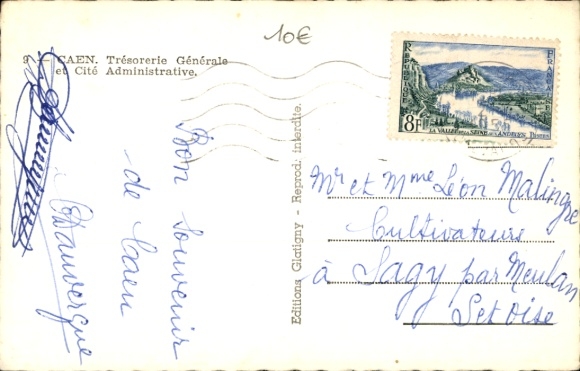 10€
9 — CAEN. Trésorerie Générale
et Cité Administrative.
Bon souvenir
de Caen
Editions Glatigny - Reprod. interdite.
RÉPUBLIQUE
FRANÇAISE
8F
LA VALLÉE DE LA SEINE AUX ANDELYS
Mr et Mme Léon Malingre
Cultivateurs
à Sagy par Meulan
Set Oise